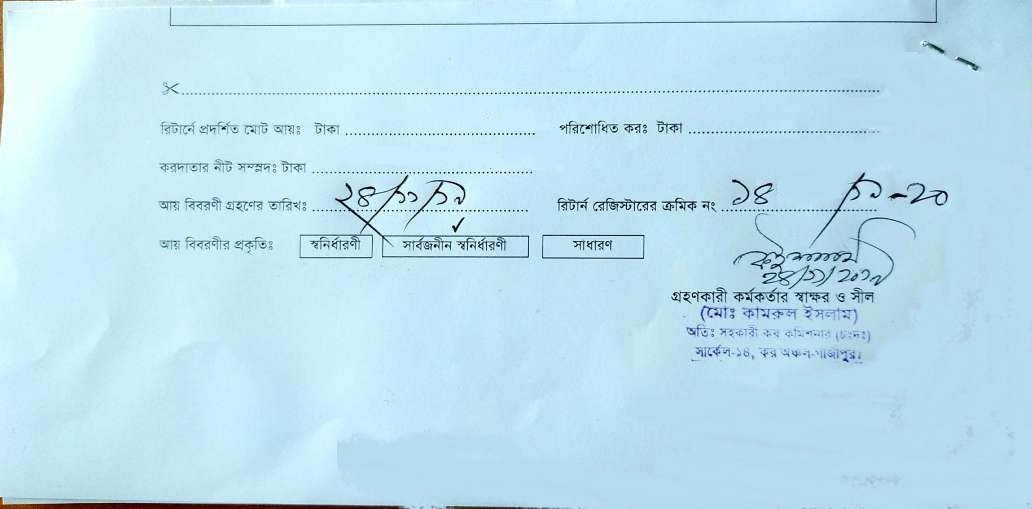 রিটার্নে প্রদর্শিত মোট আয়ঃ টাকা ........................ পরিশোধিত করঃ টাকা ........................
করদাতার নীট সম্পদঃ টাকা ........................
আয় বিবরণী গ্রহণের তারিখঃ ২৪/১১/১৯ রিটার্ন রেজিস্টারের ক্রমিক নং ১৪ /১৯-২০
আয় বিবরণীর প্রকৃতিঃ স্বনির্ধারণী সার্বজনীন স্বনির্ধারণী সাধারণ
২৪/১১/২০১৯
গ্রহণকারী কর্মকর্তার স্বাক্ষর ও সীল
(মোঃ কামরুল ইসলাম)
অতিঃ সহকারী কর কমিশনার (চঃদঃ)
সার্কেল-১৪, কর অঞ্চল-গাজীপুর।